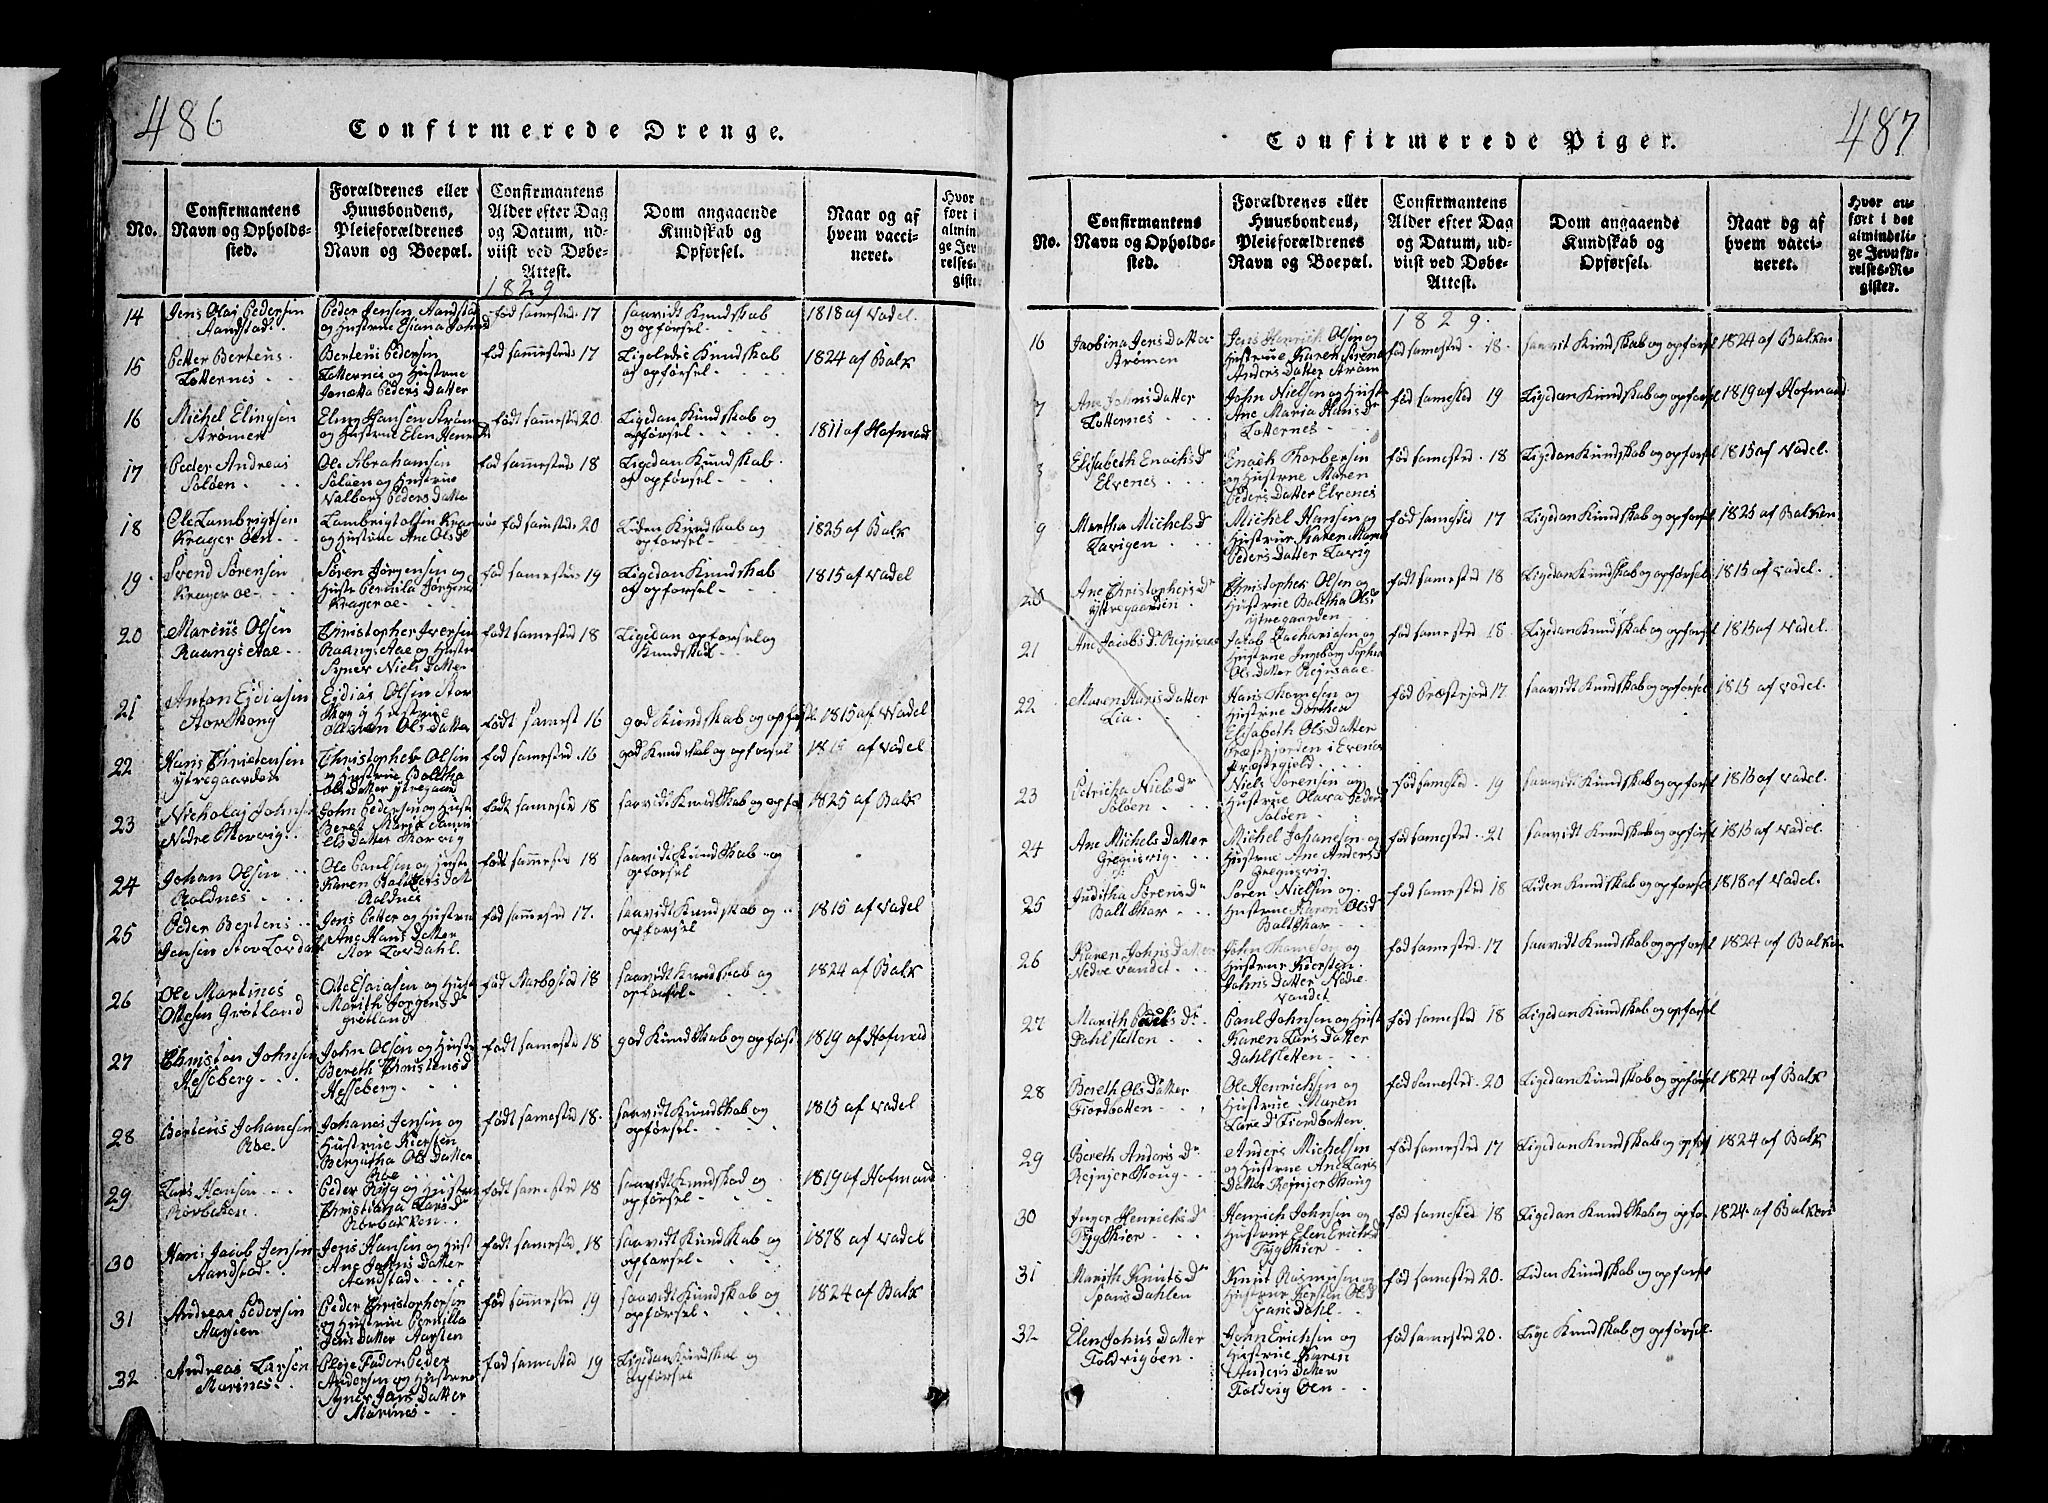 486
Confirmerede Drenge.
No.
Confirmantens
Navn og Opholds-
sted.
Forældrenes eller
Huusbondens,
Pleieforældrenes
Navn og Boepæl.
Confirmantens
Alder efter Dag
og Datum, ud-
viist ved Døbe-
Attest.
Dom angaaende
Kundskab og
Opførsel.
Naar og af
hvem vacci-
neret.
Hvor an-
ført i det
almindeli-
ge Jevnfø-
relses-Re-
gister.
1829
14
Jens Olaj Pedersen
Aandstad
Peder Jensen Aandstad
og Hustrue
fød samested 17
saavidt Kundskab
og opførsel
1818 af Vadel.
15
Petter Berteus
Lotternes
Berteus Pedersen
Lotternes og Hustrue
Jonetta Peders Datter
fød sammested 17
Ligeledes Kundskab
og opførsel
1824 af Balk
16
Michel Elingsen
Strømen
Eling Hansen Strømen
og Hustrue Elen Henr
født sammested 20
Ligedan Kundskab og
opførsel
1811 af Hofmand
17
Peder Andreas
Soløen
Ole Abrahamsen
Soløen og Hustrue
Valborg Peders Datter
fød sammested 18
Ligedan Kundskab
og opførsel
18
Ole Lambrigtsen
Krager Øen
Lambrigt Olsen Krager
og Hustrue Ane Olsd
fød samested 20
Liden Kundskab og
opførsel
1825 af Balk
19
Svend Sørensen
Krager oe
Søren Jørgensen og
Hustr Pernila Jørgens
Krager oe
fød samested 19
Ligedan Kundskab
og opførsel
1815 af Vadel
20
Marcus Olsen
Raangs Aae
Christopher Iversen
Raangs Aae og Hustr
Synev Niels Datter
født samested 18
Ligedan opførsel og
Kundskab
21
Anton Ejdiasen
Stor Skong
Ejdias Olsen Stor
Skong Hustrue
Maren Ols Datter
født samest 16
god Kundskab og opførsel
1815 af Vadel
22
Hans Christensen
ytregaarden
Christopher Olsen
og Hustrue Baltha
Ols Datter ytregaard
fød samested 16
god Kundskab og opførsel
1815 af Vadel
23
Nicholaj Johnsen
Nedre
John Pedersen og Hustr
Beret Maria
els Datter
født samested 18
saavidt Kundskab og opførsel
1825 af Balk
24
Johan Olsen
Roldnes
Ole Paulsen og Hustr
Karen Baltzersdat
Roldnes
født sammested 18
saavidt Kundskab og
opførsel
25
Peder Bertens
Jensen Stor Lovdahl
Jens Petter og Hustrue
Ane Hans Datter
Stor Lovdahl.
fød sammested 17.
saavidt Kundskab og
opførsel
1815 af Vadel
26
Ole Martines
Ottesen Grøtland
Otte Esaiasen og Hust
Marith Jorgensd
Grøtland
fød 18
saavidt Kundskab og
opførsel
1824 af Balk
27
Christen Johnsen
Hesseberg
John Olsen og Hustr
Bereth Christensd
Hesseberg
født samested 18
god Kundskab og opførsel
1819 af Hofmad
28
Bertens Johanesen
Roe.
Johanes Jensen og
Hustrue Kiersten
Bergitha Ols Datter
Roe
født samested 18.
saavidt Kundskab og
opførsel
1815 af Vadel
29
Lars Hansen
Rørbaken
Peder Ryg og Hustrue
Christiana Larsd
Rørbakken
født samested 18
saavidt Kundskad og
opførsel
1819 af Hofmand
30
Hans Jacob Jensen
Aandstad
Jens Hansen og Hust
Ane Johns Datter
Aandstad
født samested. 18
saavidt Kundskab og
opførsel
1878 af Vadel
31
Andreas Pedersen
Aarsten
Peder Christophersen
og Hustrue Pernilla
Jens Datter Aarsten
fød sammested 19
saavidt Kundskab og
opførsel
1824 af Balk
32
Andreas Larsen
Marines
Pleje Fader Peder
Andersen og Hustrue
Synev Jans Datter
Marines
fød samested 19
Ligedan Kundskab og
opførsel
487
Confirmerede Piger.
No.
Confirmantens
Navn og Opholds-
sted.
Forældrenes eller
Huusbondens,
Pleieforældrenes
Navn og Boepæl.
Confirmantens
Alder efter Dag
og Datum, ud-
viist ved Døbe-
Attest.
Dom angaaende
Kundskab og
Opførsel.
Naar og af
hvem vacci-
neret.
Hvor an-
ført i det
almindeli-
ge Jevnfø-
relses-Re-
gister.
1829.
16
Jacobina Jens Datter
Strømen
Jens Henrich Olsen og
Hustrue Karen
Anders Datter Strøm
fød samested 18.
saavit Kundskab og opførsel
1824 af Balken
7
Ane Johns Datter
Lotternes
John Nielsen og Hust
Ane Maria Hansd
Lotternes
fød samested 19
Ligedan Kundskab og opførsel
1819 af Hofmand
8
Elisabeth Enochs Dr
Elvenes
Enoch Thorbersen
og Hustrue Maren
Peders Datter Elvenes
fød samested 18
Ligedan Kundskab og opførsel
1815 af Vadel.
9
Martha Michels Dr
Lavigen
Michel Hansen og
Hustrue Karen Maria
Peders Datter Lavig
fød samested 17
Ligedan Kundskab og opførsel
1825 af Balken
20
Ane Christophers Dr
ytregaarden
Christopher Olsen og
Hustrue Baltha Olsd
ytregaarden
født samested 18
Ligedan Kundskab og opførsel
1815 af Vadel.
21
Ane Jacobs Dr Rejnsaae
Jacob Zachariasen og
Hustrue Ingeborg Sophia
Ols Datter Rejnsaae
fød samested 18
Ligedan Kundskab og opførsel
1815 af Vadel.
22
Maren Hans Datter
Lia
Hans Thomesen og
Hustrue Dorthea
Elisabeth Ols Datter
i Evenes
Præstegield
fød 17.
saavidt Kundskab og opførsel
1815 af Vadel.
23
Petricka Niels Dr
Soløen
Niels Sørensen og
Hustrue Olava Peders
Soløen
fød samested. 19
saavidt Kundskab og opførsel
1815 af Vadel.
24
Ane Michels Datter
Gregusvig
Michel Johanesen og
Hustrue Ane Andersd
Gregusvig
fød samested 21
saavidt Kundskab og opførsel
1815 af Vadel.
25
Juditha Sørens Dr
Balteskar
Søren Nielsen og
Hustrue Karen Olsd
Balteskar
fød samested 18
Liden Kundskab og opførsel
1818 af Vadel.
26
Karen Johns Datter
Nedre Vandet
John Thomesen og
Hustrue Kiersten
Johns Datter Nedre
Vandet
fød samested. 17
saavidt Kundskab og opførsel
1824 af Balken
27
Marith Pauls Dr
Dahlsletten
Paul Johnsen og Hust
Karen Lars Datter
Dahlsletten
fød samested 18
Ligedan Kundskab og opførsel
28
Bereth Ols Datter
Fiordbotten
Ole Henrichsen og
Hustrue Maren
Larsd Fiordbotten
fød samested. 20
Ligedan Kundskab og opførsel
1824 af Balk
29
Bereth Anders Dr
Rejnjer Skoug
Anders Michelsen
og Hustrue Ane Lars
Datter Rejnjer Skoug
fød samested 17
Ligedan Kundskab og opførsel
1824 af Balk
30
Inger Henrichs Dr
Tyggskier
Henrich Johnsen og
Hustrue Elen Erichsd
Tygskier
fød samested 18
Ligedan Kundskab og opføre
1824. af Balken
31
Marith Knuts Dr
Spans Dahlen
Knut Rasmusen og
Hustrue Kersten Olsd
Spans Dahl
fød samested 20.
Liden Kundskab og opførsel
32
Elen Johns Datter
Toldvigøen
John Erichsen og
Hustrue Karen
Anders Datter
Toldvig Øen
fød samested 20.
Lige Kundskab og opførsel.